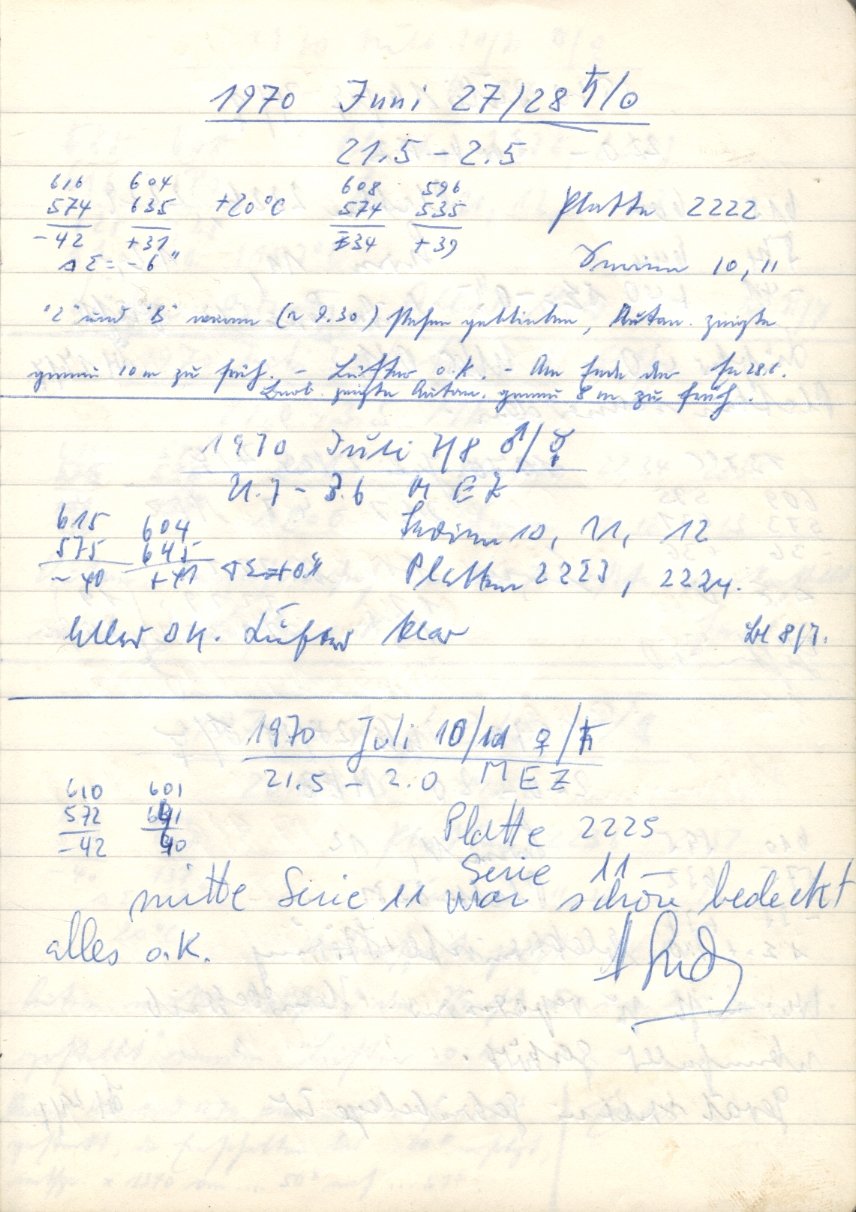 1970 Juni 27/28 ♄/☉
21.5 – 2.5
616 604 608 596
574 635 +20°C 574 535 Platte 2222
-42 +31 -34 +39
ΔΣ = -6" Serien 10, 11
"Z" und "B" waren (~ 9.30) stehen geblieben, Autom. zeigte
genau 10 m zu früh. – Lüfter o.k. – Am Ende der
Beob. zeigte Autom. genau 8 m zu früh.
1970 Juli 7/8 ♂/☿
21.7 – 3.6 MEZ
615 604 Serien 10, 11, 12
575 645
-40 +41 Platten 2223, 2224.
Alles OK. Lüfter klar 8/7.
1970 Juli 10/11 ♀/♄
21.5 – 2.0 MEZ
610 601
572 641 Platte 2225
-42 40
Serie 11
mitte Serie 11 war schön bedeckt
alles o.k.